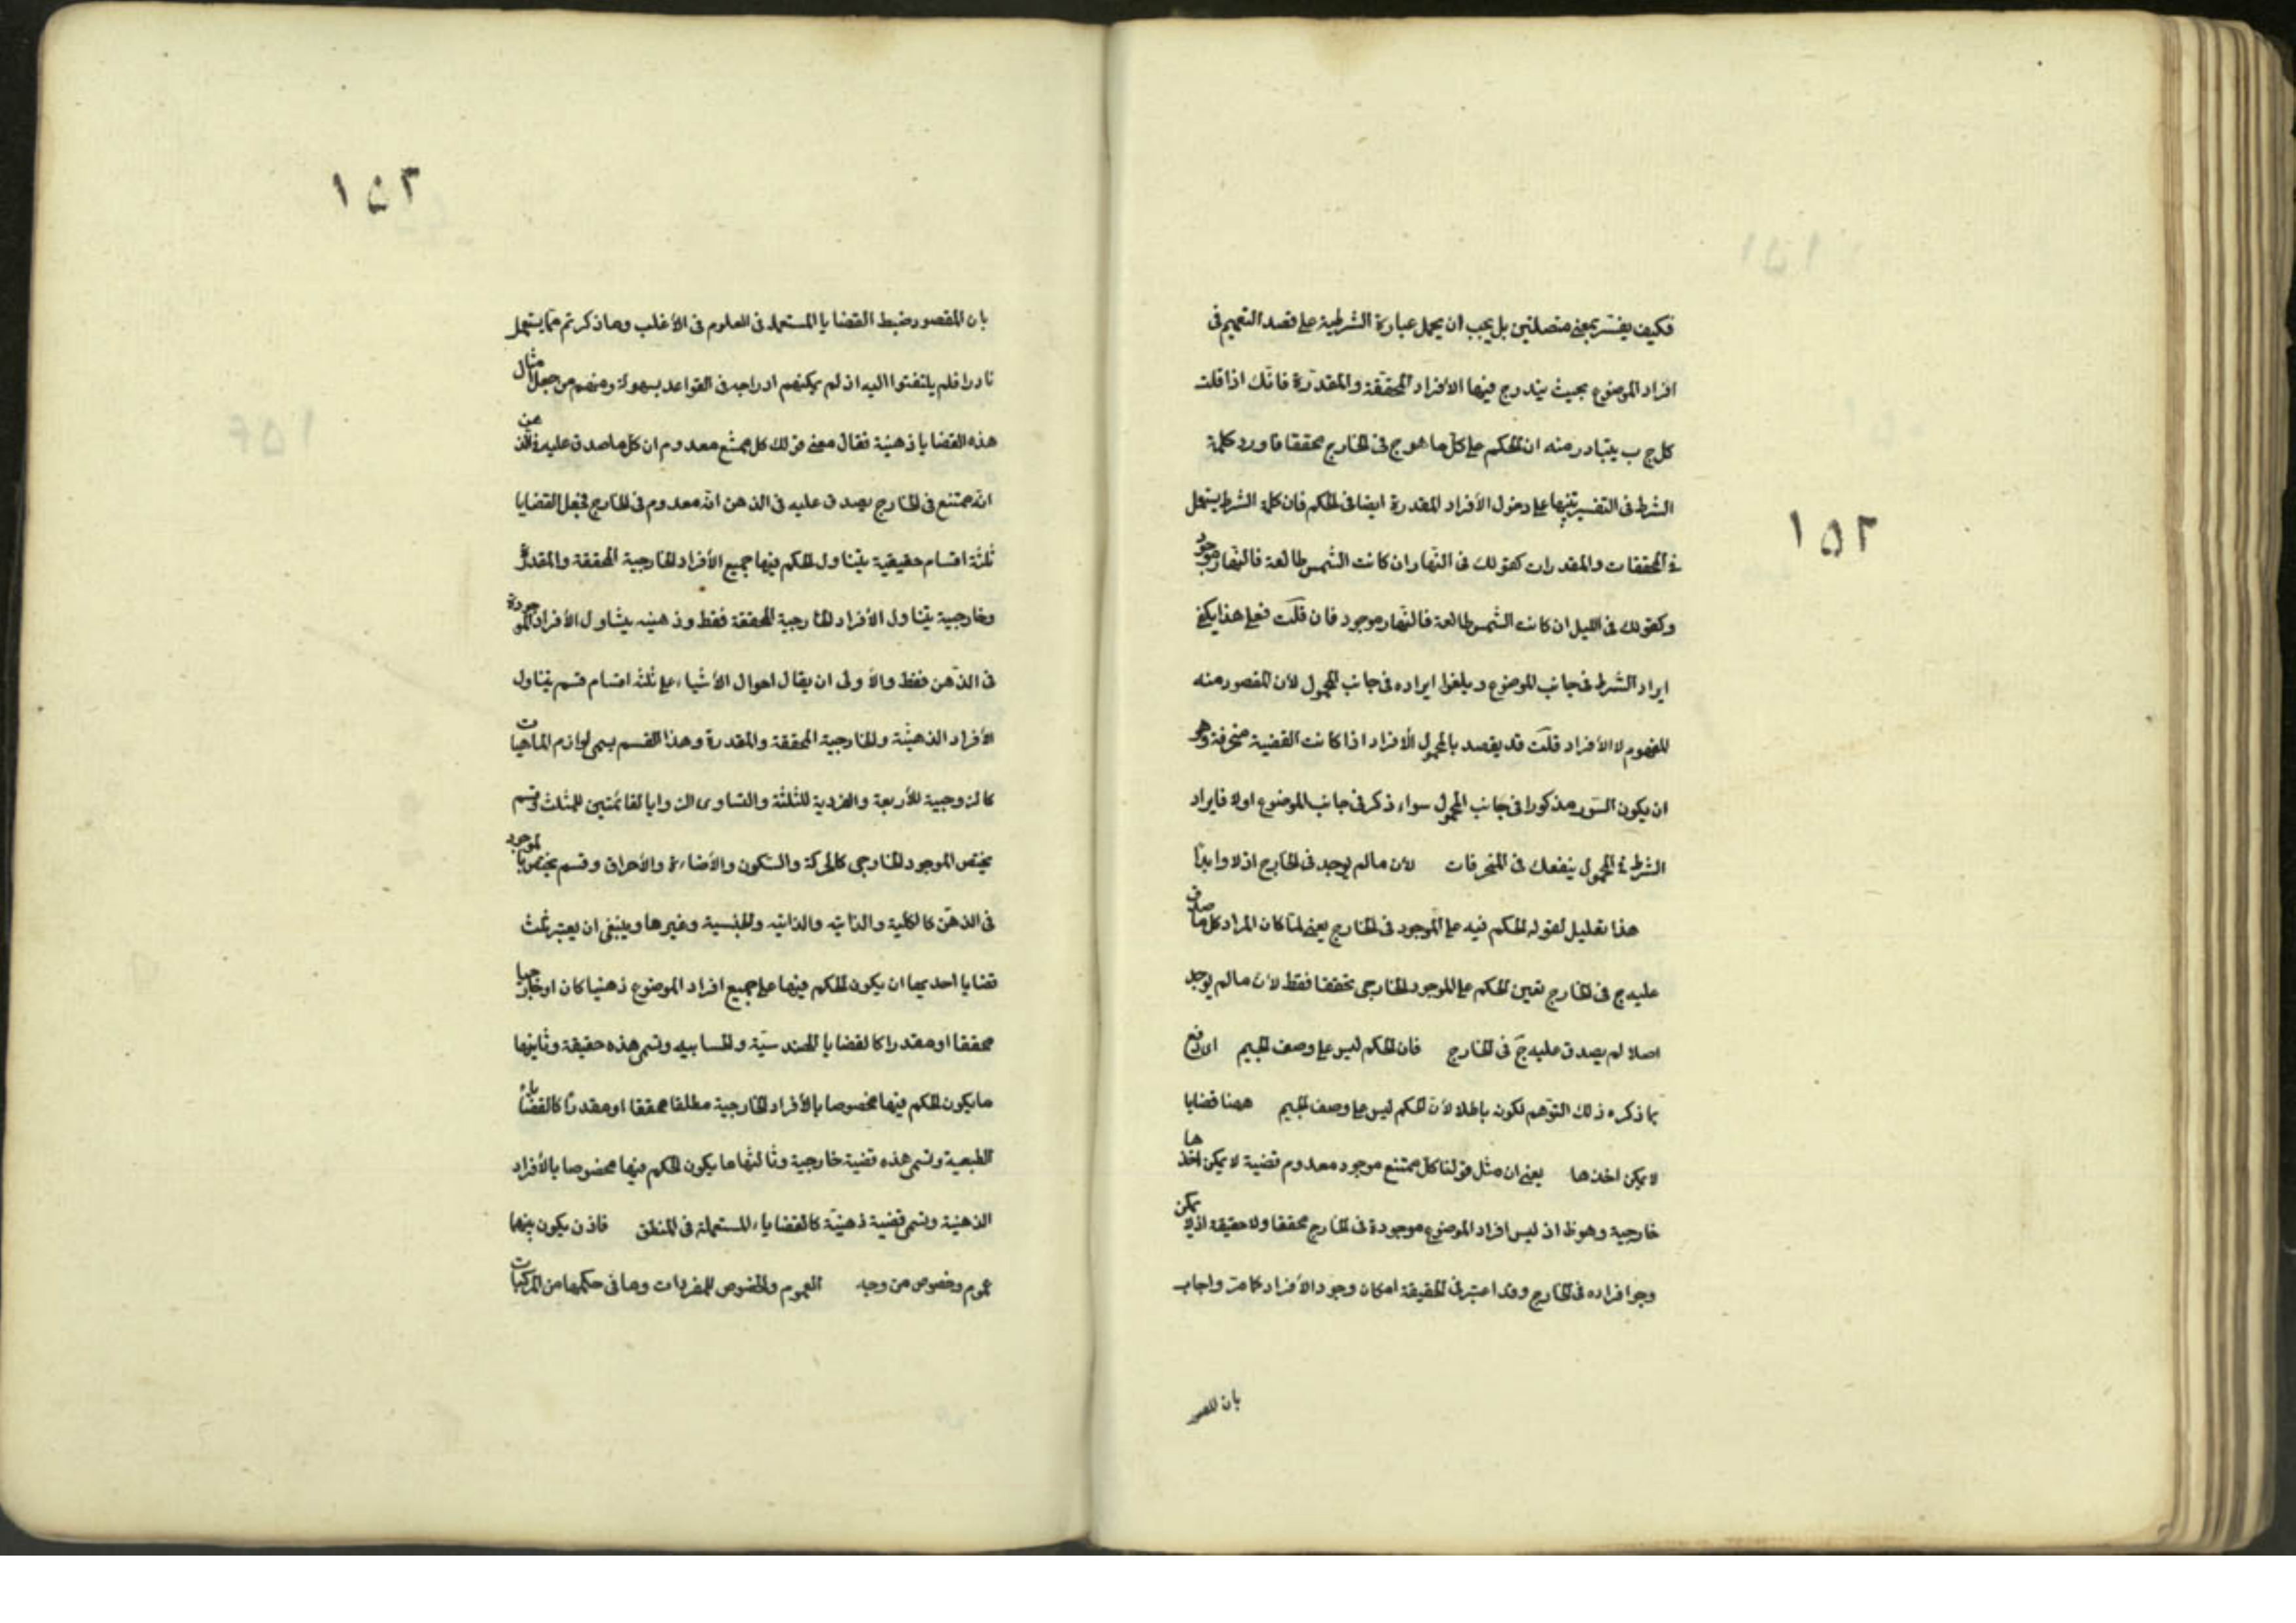 ١٥٢
فكيف يفسّر بمعنى متصلتين بل يجب ان يحمل عبارة الشرطية على قصد التعميم فى
افراد الموضوع بحيث يندرج فيها الافراد المحقّقة والمقدّرة فانّك اذا قلت
كل ج ب يتبادر منه ان الحكم على كلّ ما هو ج فى الخارج محققا فاورد كلمة
الشرط فى التفسير تنبيها على دخول الأفراد المقدرة ايضا فى الحكم فان كلمة الشرط يستعمل
فى المحققات والمقدرات كقولك فى النّهار ان كانت الشّمس طالعة فالنّهار موجود
وكقولك فى الليل ان كانت الشّمس طالعة فالنّهار موجود فان قلت فعلى هذا يكفى
ايراد الشّرط فى جانب الموضوع ويلغوا ايراده فى جانب المحمول لأن المقصود منه
المفهوم لا الأفراد قلت قد يقصد بالمحمول الأفراد اذا كانت القضية منحرفة وهو
ان يكون السّور مذكورا فى جانب المحمول سواء ذكر فى جانب الموضوع اولا فايراد
الشرط فى المحمول ينفعك فى المنحرفات لان مالم يوجد فى الخارج ازلا وابدًا
هذا تعليل لقوله الحكم فيه على الموجود فى الخارج يعنى لمّا كان المراد كل ما صدق
عليه ج فى الخارج تعين الحكم على الموجود الخارجى محققا فقط لأن مالم يوجد
اصلا لم يصدق عليه ج فى الخارج فان الحكم ليس على وصف الجيم اندفع
بما ذكره ذلك التوّهم لكونه باطلا لأن الحكم ليس على وصف الجيم ههنا قضايا
لا يمكن اخذها يعنى ان مثل قولنا كلّ ممتنع موجود معدوم قضية لا يمكن اخذها
خارجية وهو ظ اذ ليس افراد الموضوع موجودة فى الخارج محققا ولا حقيقة اذ لا يمكن
وجود افراده فى الخارج وقد اعتبر فى الحقيقة امكان وجود الأفراد كما مرّ واجاب
بان المقصود
١٥٣
بان المقصود ضبط القضايا المستعملة فى العلوم فى الأغلب وما ذكرتم ممّا يستعمل
نادرا فلم يلتفتوا اليه اذ لم يمكنهم ادراجه فى القواعد بسهولة ومنهم من جعل مثال
هذه القضايا ذهنيّة فقال معنى قولك كل ممتنع معدوم ان كلّ ما صدق عليه فى الذهن
انّه ممتنع فى الخارج يصدق عليه فى الذهن انّه معدوم فى الخارج فجعل القضايا
ثلثة اقسام حقيقية يتناول الحكم فيها جميع الأفراد الخارجية المحققة والمقدرة
وخارجية يتناول الأفراد الخارجية المحققة فقط وذهنيه يتناول الأفراد الموجودة
فى الذّهن فقط والأولى ان يقال احوال الأشياء على ثلثة اقسام قسم يتناول
الأفراد الذهنيّة والخارجية المحققة والمقدرة وهذا القسم يسمى لوازم الماهيات
كالزوجية للأربعة والفردية للثلثة والتساوى الزوايا لقائمتين للمثلث وقسم
يختص الموجود الخارجى كالحركة والسّكون والأضاءة والأحراق وقسم يختص بالموجود
فى الذهن كالكلية والذّاتيه والذاتيه والجنسية وغيرها وينبغى ان يعتبر ثلث
قضايا احديها ان يكون الحكم فيها على جميع افراد الموضوع ذهنيا كان او خارجيا
محققا او مقدرا كالقضايا الهندسيّة والحسابيه وتسمى هذه حقيقة وثانيها
ما يكون الحكم فيها مخصوصا بالأفراد الخارجية مطلقا محققا او مقدرا كالقضاياء
الطبعية وتسمى هذه قضية خارجية وثالثها ما يكون الحكم فيها مخصوصا بالأفراد
الذهنيّة وتسمى قضية ذهنيّة كالقضاياء المستعملة فى المنطق فاذن يكون بينهما
عموم وخصوص من وجه العموم والخصوص للمفردات وما فى حكمها من المركبات